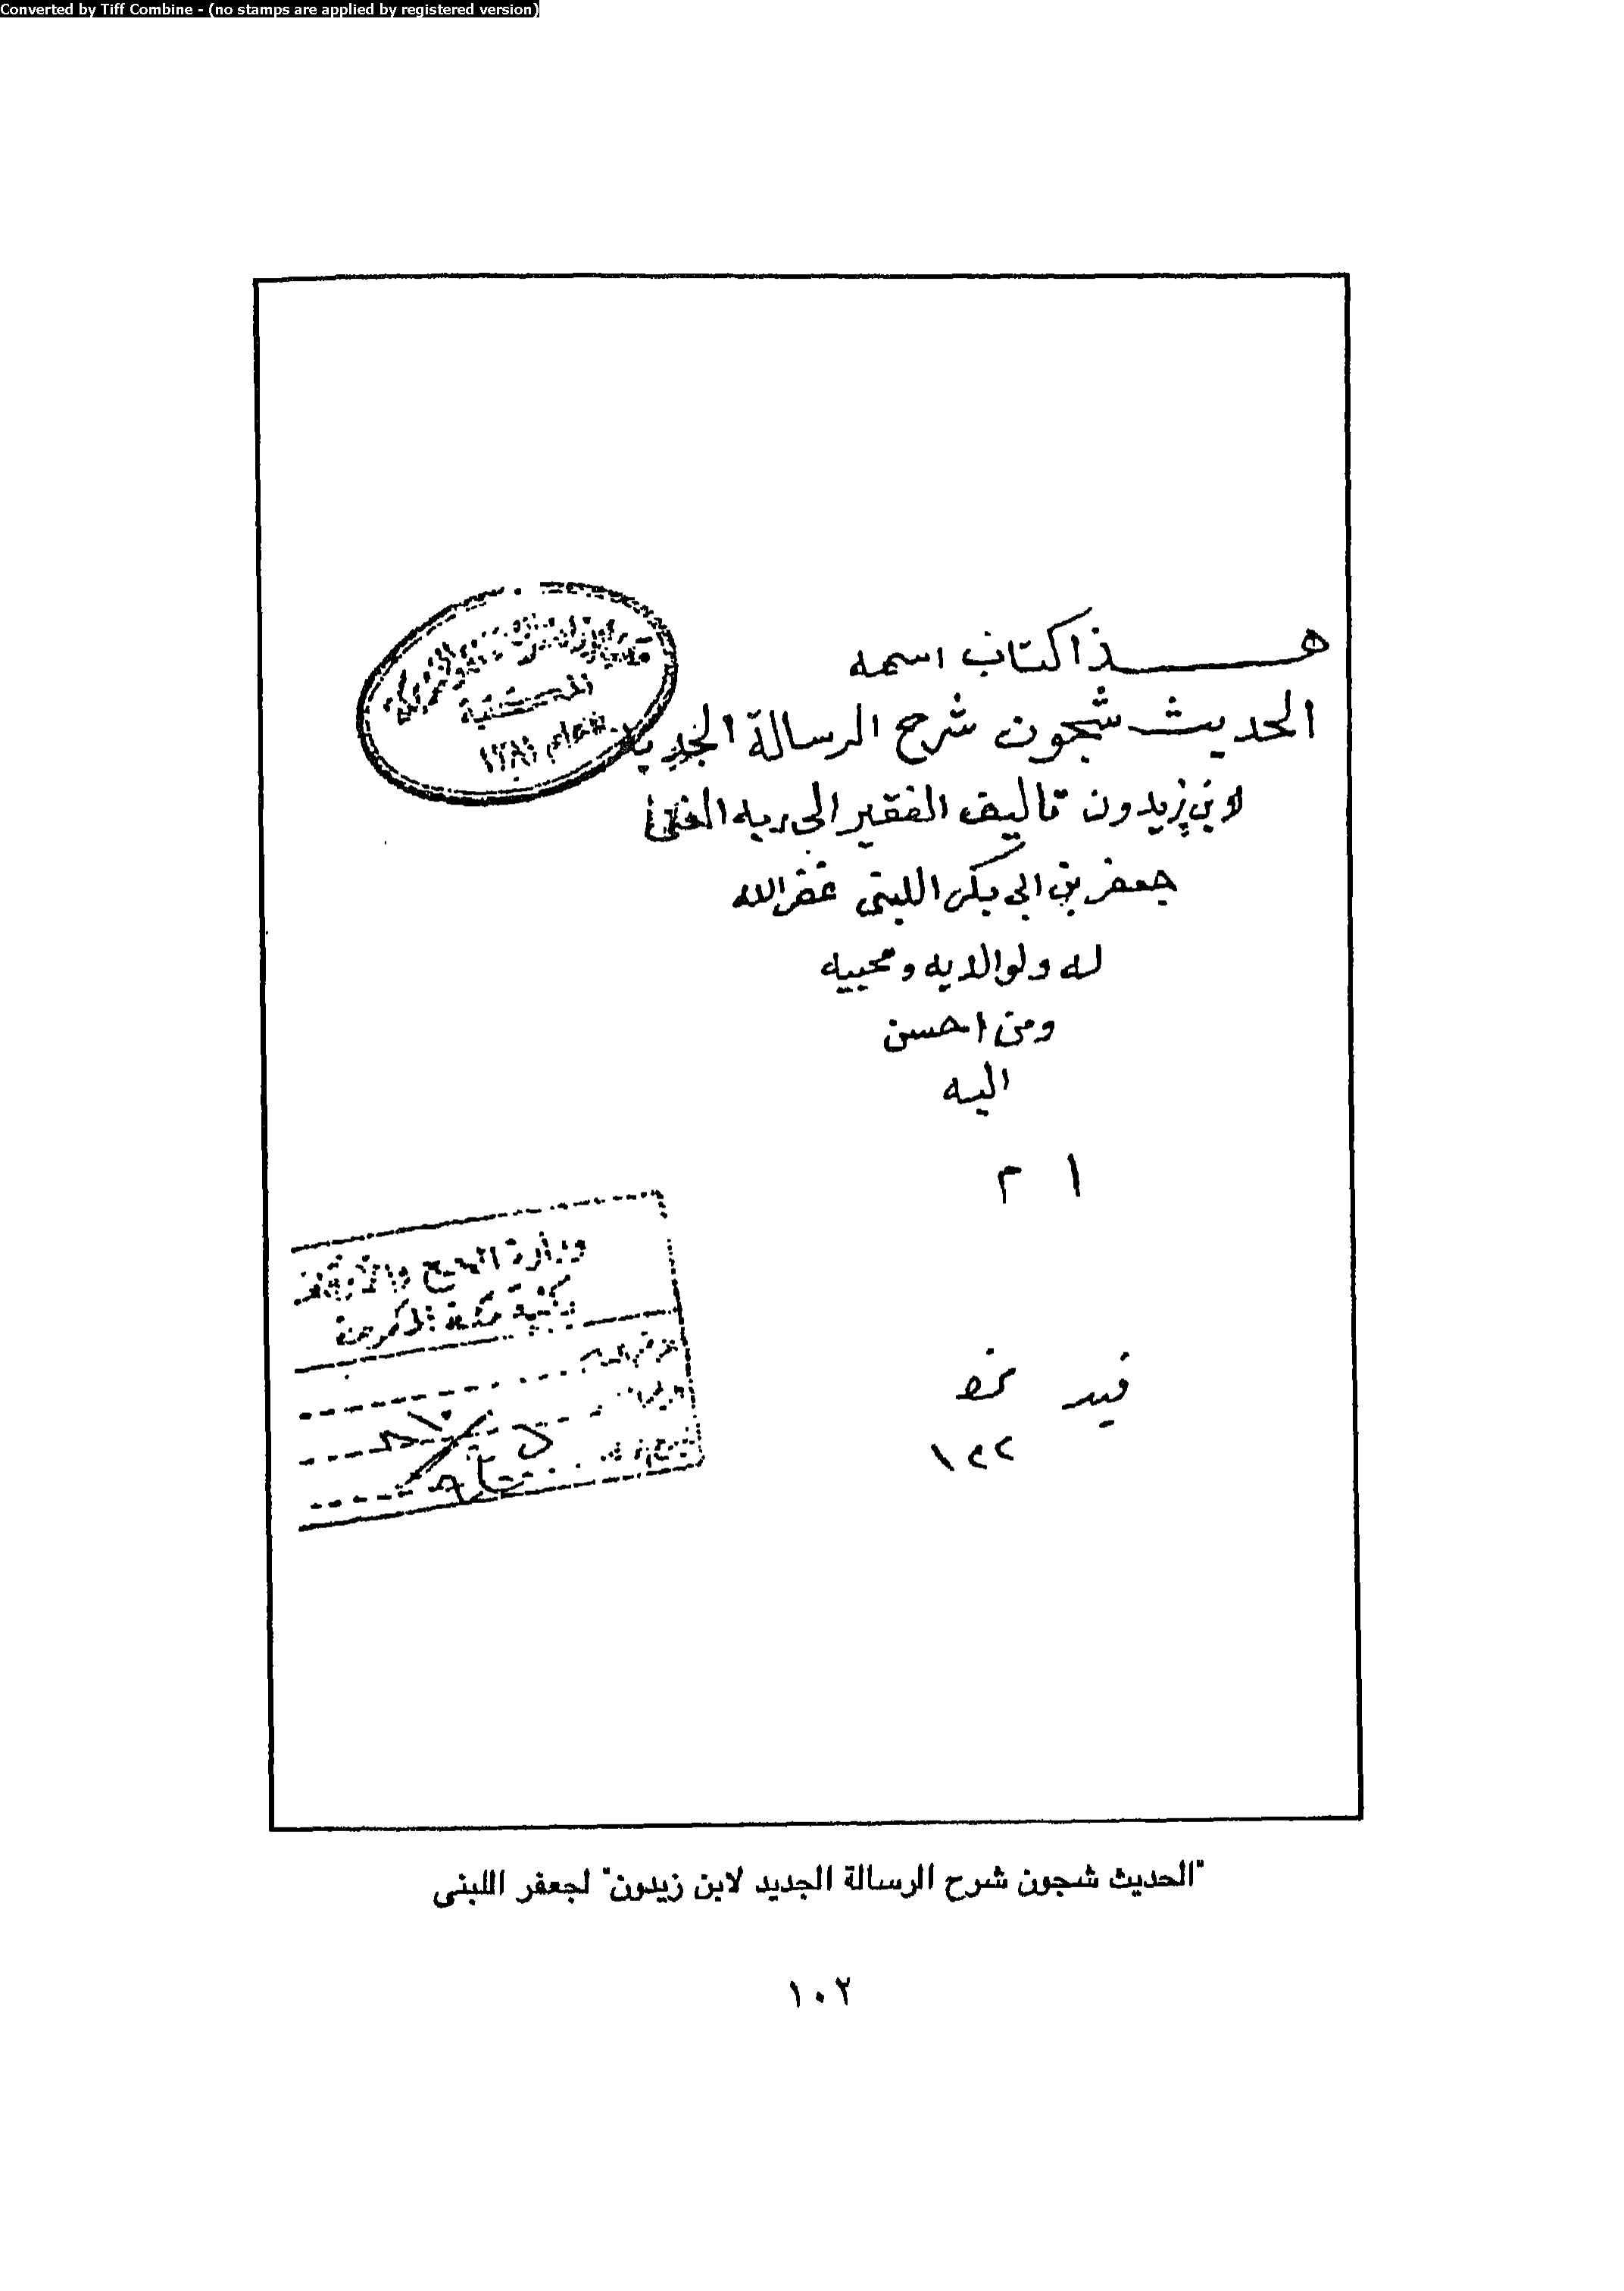 Converted by Tiff Combine - (no stamps are applied by registered version)
هـــذا كتاب اسمه
الحديث شجون شرح الرسالة الجديه
لابن زيدون تاليف الفقير الى ربه الغنى
جعفر بن ابى بكر اللبنى غفر الله
له ولوالديه ومحبيه
ومن احسن
اليه
١ م
وزارة الحج والأوقاف
مكتبة مكة المكرمة
قيد
"الحديث شجون شرح الرسالة الجديد لابن زيدون" لجعفر اللبنى
١٠٢